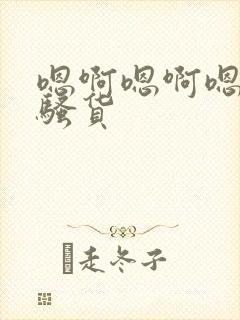 嗯啊嗯啊嗯
骚货
走冬子